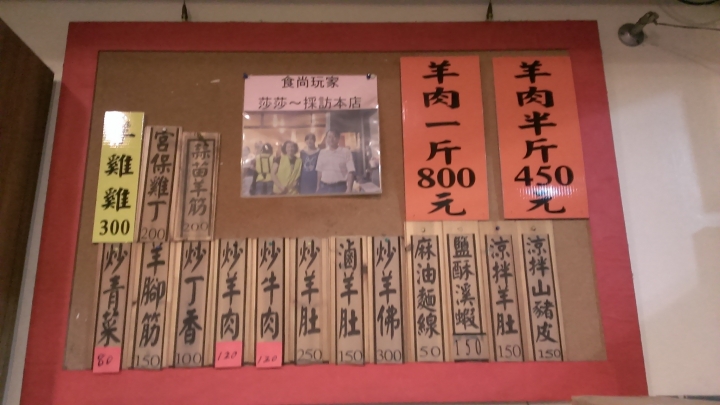 食尚玩家
莎莎～採訪本店
羊肉一斤800元
羊肉半斤450元
雞雞300
宮保雞丁200
蒜苗羊筋200
炒青菜80
羊腳筋150
炒丁香100
炒羊肉120
炒牛肉120
炒羊肚250
滷羊肚150
炒羊佛300
麻油麵線50
鹽酥溪蝦150
涼拌羊肚150
涼拌山豬皮150